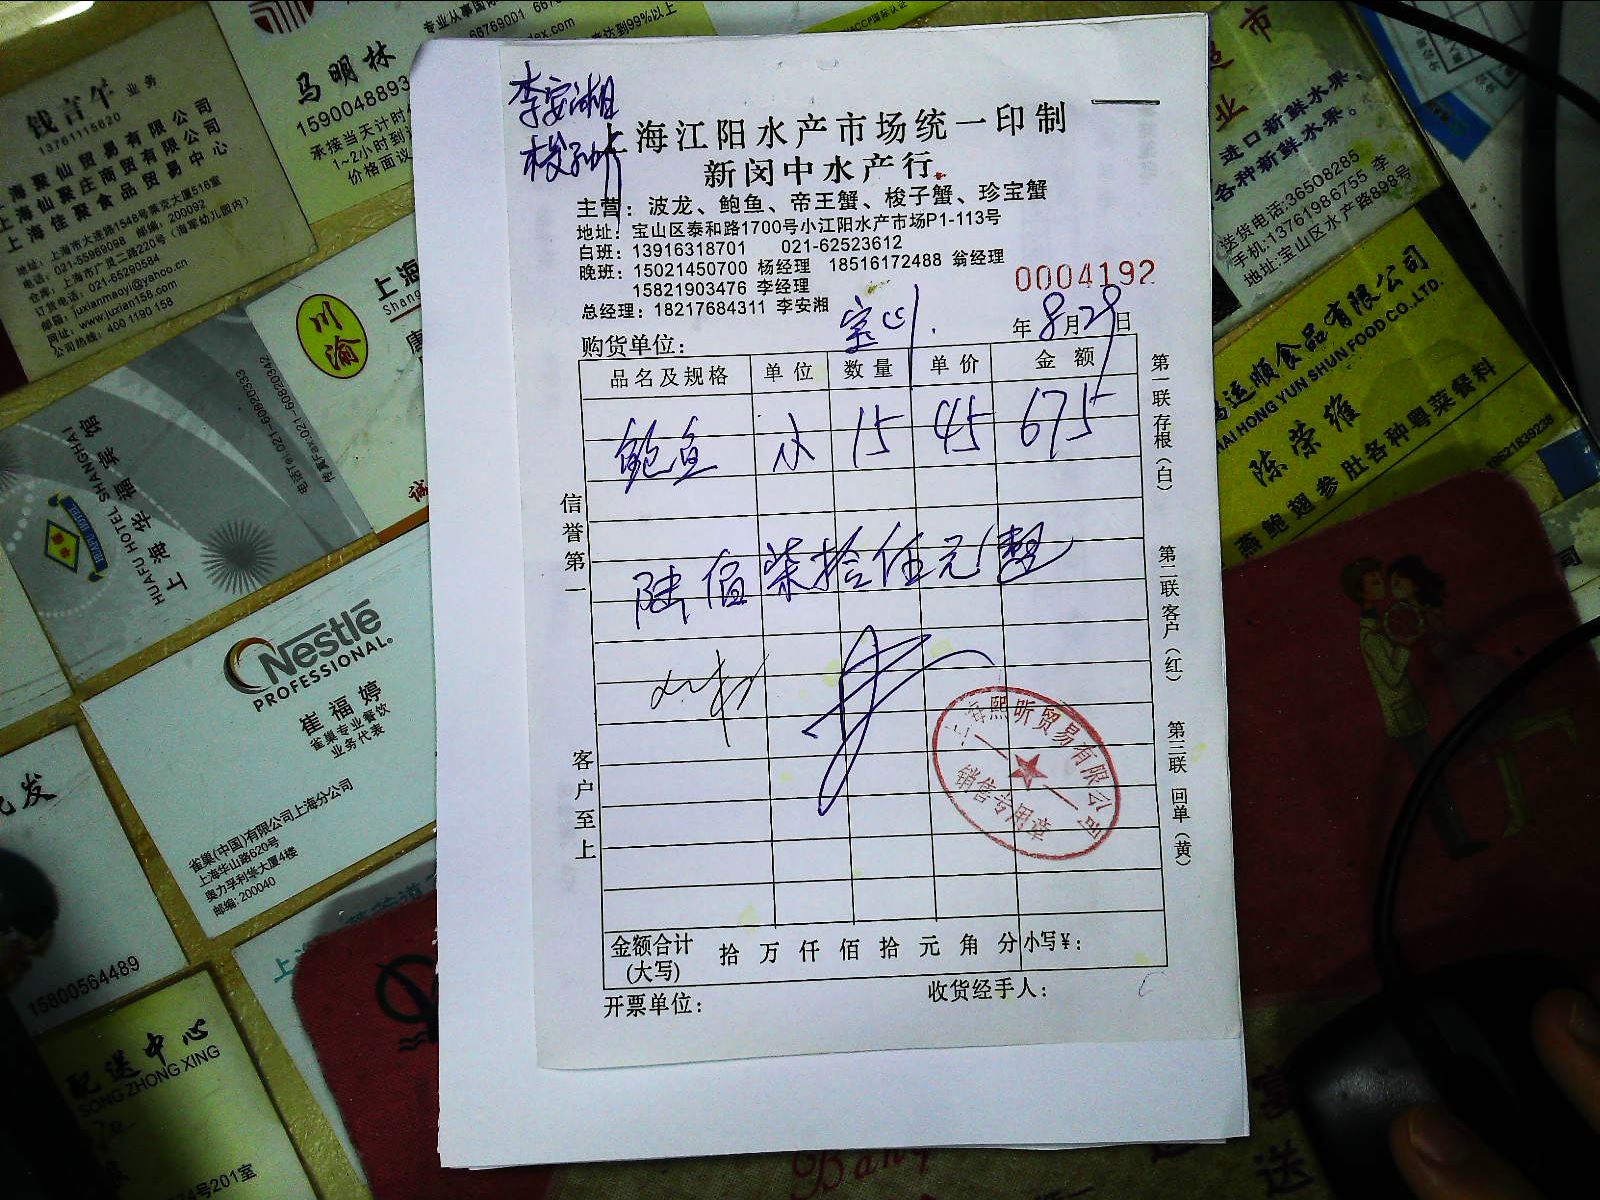 李安湘
梭子蟹
上海江阳水产市场统一印制
新闵中水产行
主营：波龙、鲍鱼、帝王蟹、梭子蟹、珍宝蟹
地址：宝山区泰和路1700号小江阳水产市场P1-113号
白班：13916318701 021-62523612
晚班：15021450700 杨经理 18516172488 翁经理
15821903476 李经理
总经理：18217684311 李安湘
0004192
年8月29日
购货单位：
品名及规格 单位 数量 单价 金额
鲍鱼 小 15 45 675
陆佰柒拾伍元整
信誉第一
客户至上
第一联存根（白）
第二联客户（红）
第三联回单（黄）
上海熙昕贸易有限公司
销售专用章
金额合计(大写) 拾 万 仟 佰 拾 元 角 分 小写￥：
开票单位： 收货经手人：
钱言午 业务
13761115620
上海聚仙贸易有限公司
上海仙聚庄商贸有限公司
上海佳聚食品贸易中心
地址：上海市大连路1548号莱克大厦516室
电话：021-55969098 邮编：200092
仓库：上海市广灵二路220号（海军幼儿园内）
订货电话：021-65290584
邮箱：juxianmaoyi@yahoo.cn
网址：www.juxian158.com
公司热线：400 1190 158
马明林
1590048893
承接当天计时
1~2小时到
价格面议
川渝
上海
Shang
唐
诚
上海华福宾馆
HUAFU HOTEL SHANGHAI
电话Tel:021-60820333
传真Fax:021-60820342
Nestlé
PROFESSIONAL.
崔福婷
雀巢专业餐饮
业务代表
雀巢(中国)有限公司上海分公司
上海华山路620号
奥力孚利华大厦4楼
邮编：200040
批发
15800564489
配送中心
SONG ZHONG XING
201室
超市
业
进口新鲜水果，
各种新鲜水果。
送货电话:36508285
手机:13761986755 李
地址:宝山区水产路898号
鸿运顺食品有限公司
HAI HONG YUN SHUN FOOD CO.,LTD.
陈荣维
燕鲍翅参肚各种粤菜餐料
送